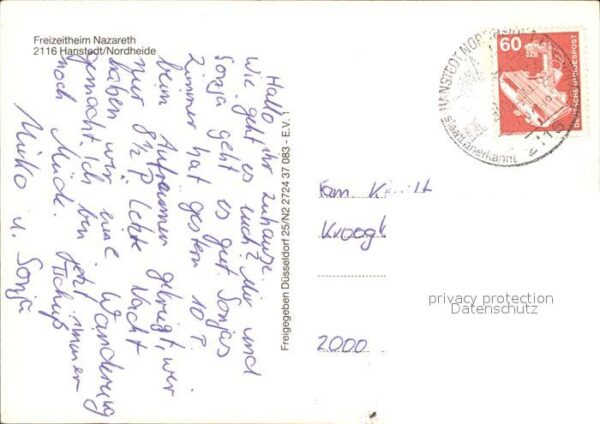 Freizeitheim Nazareth
2116 Hanstedt/Nordheide
Hallo ihr zuhause
Wie geht es euch? Mir und
Sonja geht es gut. Sonjas
Zimmer hat gestern 10 P.
beim Aufräumen gekriegt, wir
nur 8½ P. Letzte Nacht
haben wir eine Wanderung
gemacht. Ich bin jetzt immer
noch Müde.
u. Sonja
Freigegeben Düsseldorf 25/N2 2724 37 083 - E.V. 1
60
DEUTSCHE BUNDESPOST
HANSTEDT, NORDHEIDE
staatl. anerkannt
2116
Fam.
2000
privacy protection
Datenschutz